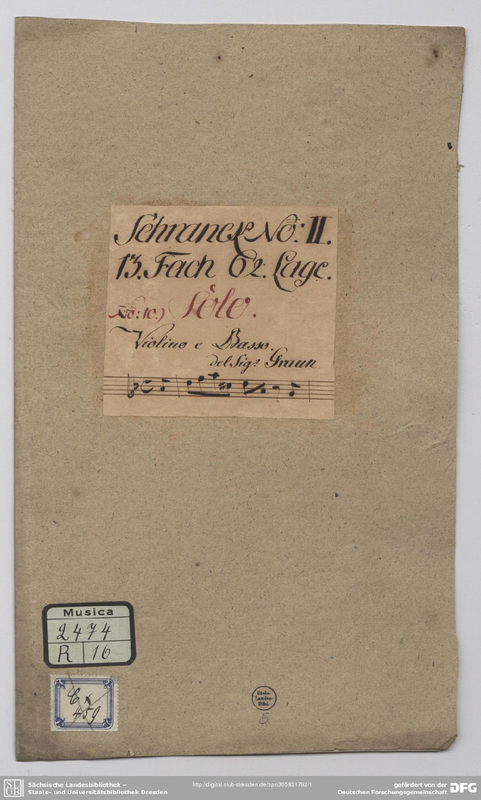 Schranck No: II.
13. Fach 62. Lage.
No: 10.) Solo.
Violino e Basso.
del Sigr. Graun
Musica
2474
R 16
459
Sächs.
Landes-
Bibl.
5.
Sächsische Landesbibliothek –
Staats- und Universitätsbibliothek Dresden
http://digital.slub-dresden.de/ppn305801792/1
gefördert von der
Deutschen Forschungsgemeinschaft
DFG